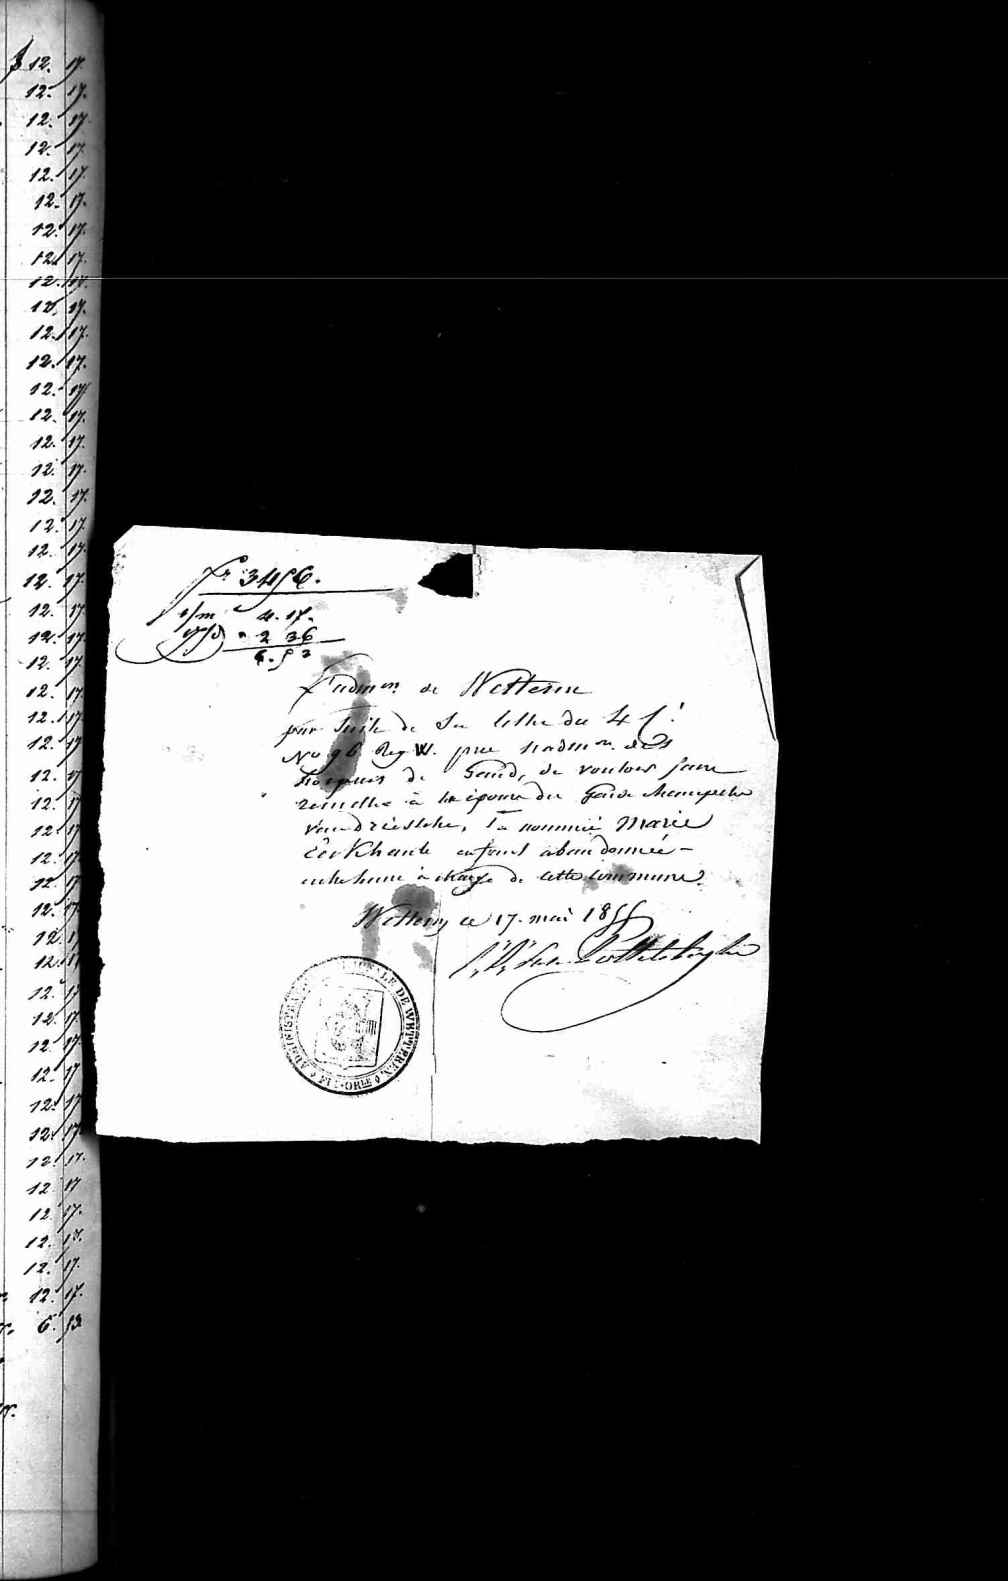 12. 17.
12. 17.
12. 17.
12. 17.
12. 17.
12. 17.
12. 17.
12. 17.
12. 17.
12. 17.
12. 17.
12. 17.
12. 17.
12. 17.
12. 17.
12. 17.
12. 17.
12. 17.
12. 17.
12. 17.
12. 17.
12. 17.
12. 17.
12. 17.
12. 17.
12. 17.
12. 17.
12. 17.
12. 17.
12. 17.
12. 17.
12. 17.
12. 17.
12. 17.
12. 17.
12. 17.
12. 17.
12. 17.
12. 17.
12. 17.
12. 17.
12. 17.
12. 17.
12. 17.
12. 17.
12. 17.
6. 53
fr 3456.
4. 17.
" 2 36
6. 53
L'admon de Wetteren
par suite de sa lettre du 4 Ct
No 96 Reg W. prie l'admon des
hospices de Gand, de vouloir faire
remettre à l'épouse du Garde champetre
Vandriessche, la nommée Marie
enfant abandonnée
à charge de cette commune.
Wetteren ce 17. mai 1855
ADMINISTRATION COMMUNALE DE WETTEREN. FL. ORLE